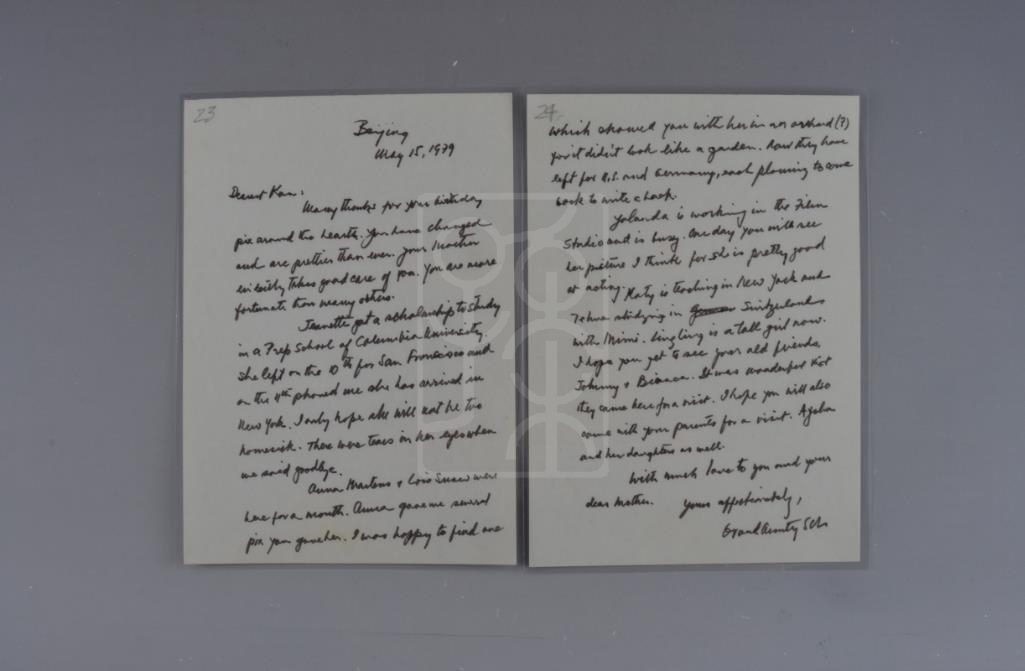 23
Beijing
May 15, 1979
Dearest Kan:
Many thanks for your birthday
pix around the hearts. You have changed
and are prettier than ever. Your mother
evidently takes good care of you. You are more
fortunate than many others.
Jeanette got a scholarship to study
in a Prep School of Columbia University.
She left on the 10th for San Francisco and
on the 11th phoned me she has arrived in
New York. I only hope she will not be too
homesick. There were tears in her eyes when
we said goodbye.
Anna Martens & Lois Snow were
here for a month. Anna gave me several
pix you gave her. I was happy to find one
24
which showed you with her in an orchard (?)
for it didn't look like a garden. Now they have
left for U.S. and Germany, each planning to come
back to write a book.
Yolanda is working in the Film
Studio and is busy. One day you will see
her picture I think for she is pretty good
at acting. Katy is teaching in New York and
studying in Switzerland
with Mimi. Lingling is a tall girl now.
I hope you get to see your old friends,
Johnny & Bianca. It was wonderful that
they came here for a visit. I hope you will also
come with your parents for a visit.
and her daughters as well.
With much love to you and your
dear mother. Yours affectionately,
Grand Aunty SCL